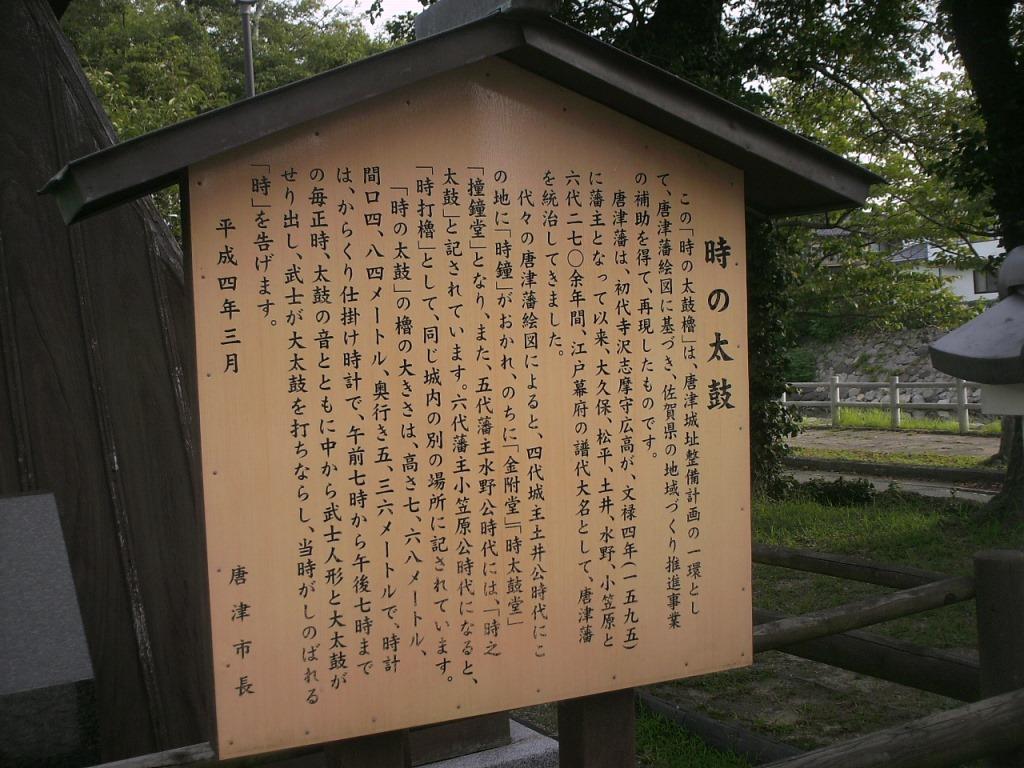 時の太鼓
この「時の太鼓櫓」は、唐津城址整備計画の一環とし
て、唐津藩絵図に基づき、佐賀県の地域づくり推進事業
の補助を得て、再現したものです。
唐津藩は、初代寺沢志摩守広高が、文禄四年(一五九五)
に藩主となって以来、大久保、松平、土井、水野、小笠原と
六代二七〇余年間、江戸幕府の譜代大名として、唐津藩
を統治してきました。
代々の唐津藩絵図によると、四代城主土井公時代にこ
の地に「時鐘」がおかれ、のちに「金附堂」「時太鼓堂」
「撞鐘堂」となり、また、五代藩主水野公時代には、「時之
太鼓」と記されています。六代藩主小笠原公時代になると、
「時打櫓」として、同じ城内の別の場所に記されています。
「時の太鼓」の櫓の大きさは、高さ七、六八メートル、
間口四、八四メートル、奥行き五、三六メートルで、時計
は、からくり仕掛け時計で、午前七時から午後七時まで
の毎正時、太鼓の音とともに中から武士人形と大太鼓が
せり出し、武士が大太鼓を打ちならし、当時がしのばれる
「時」を告げます。
平成四年三月
唐津市長